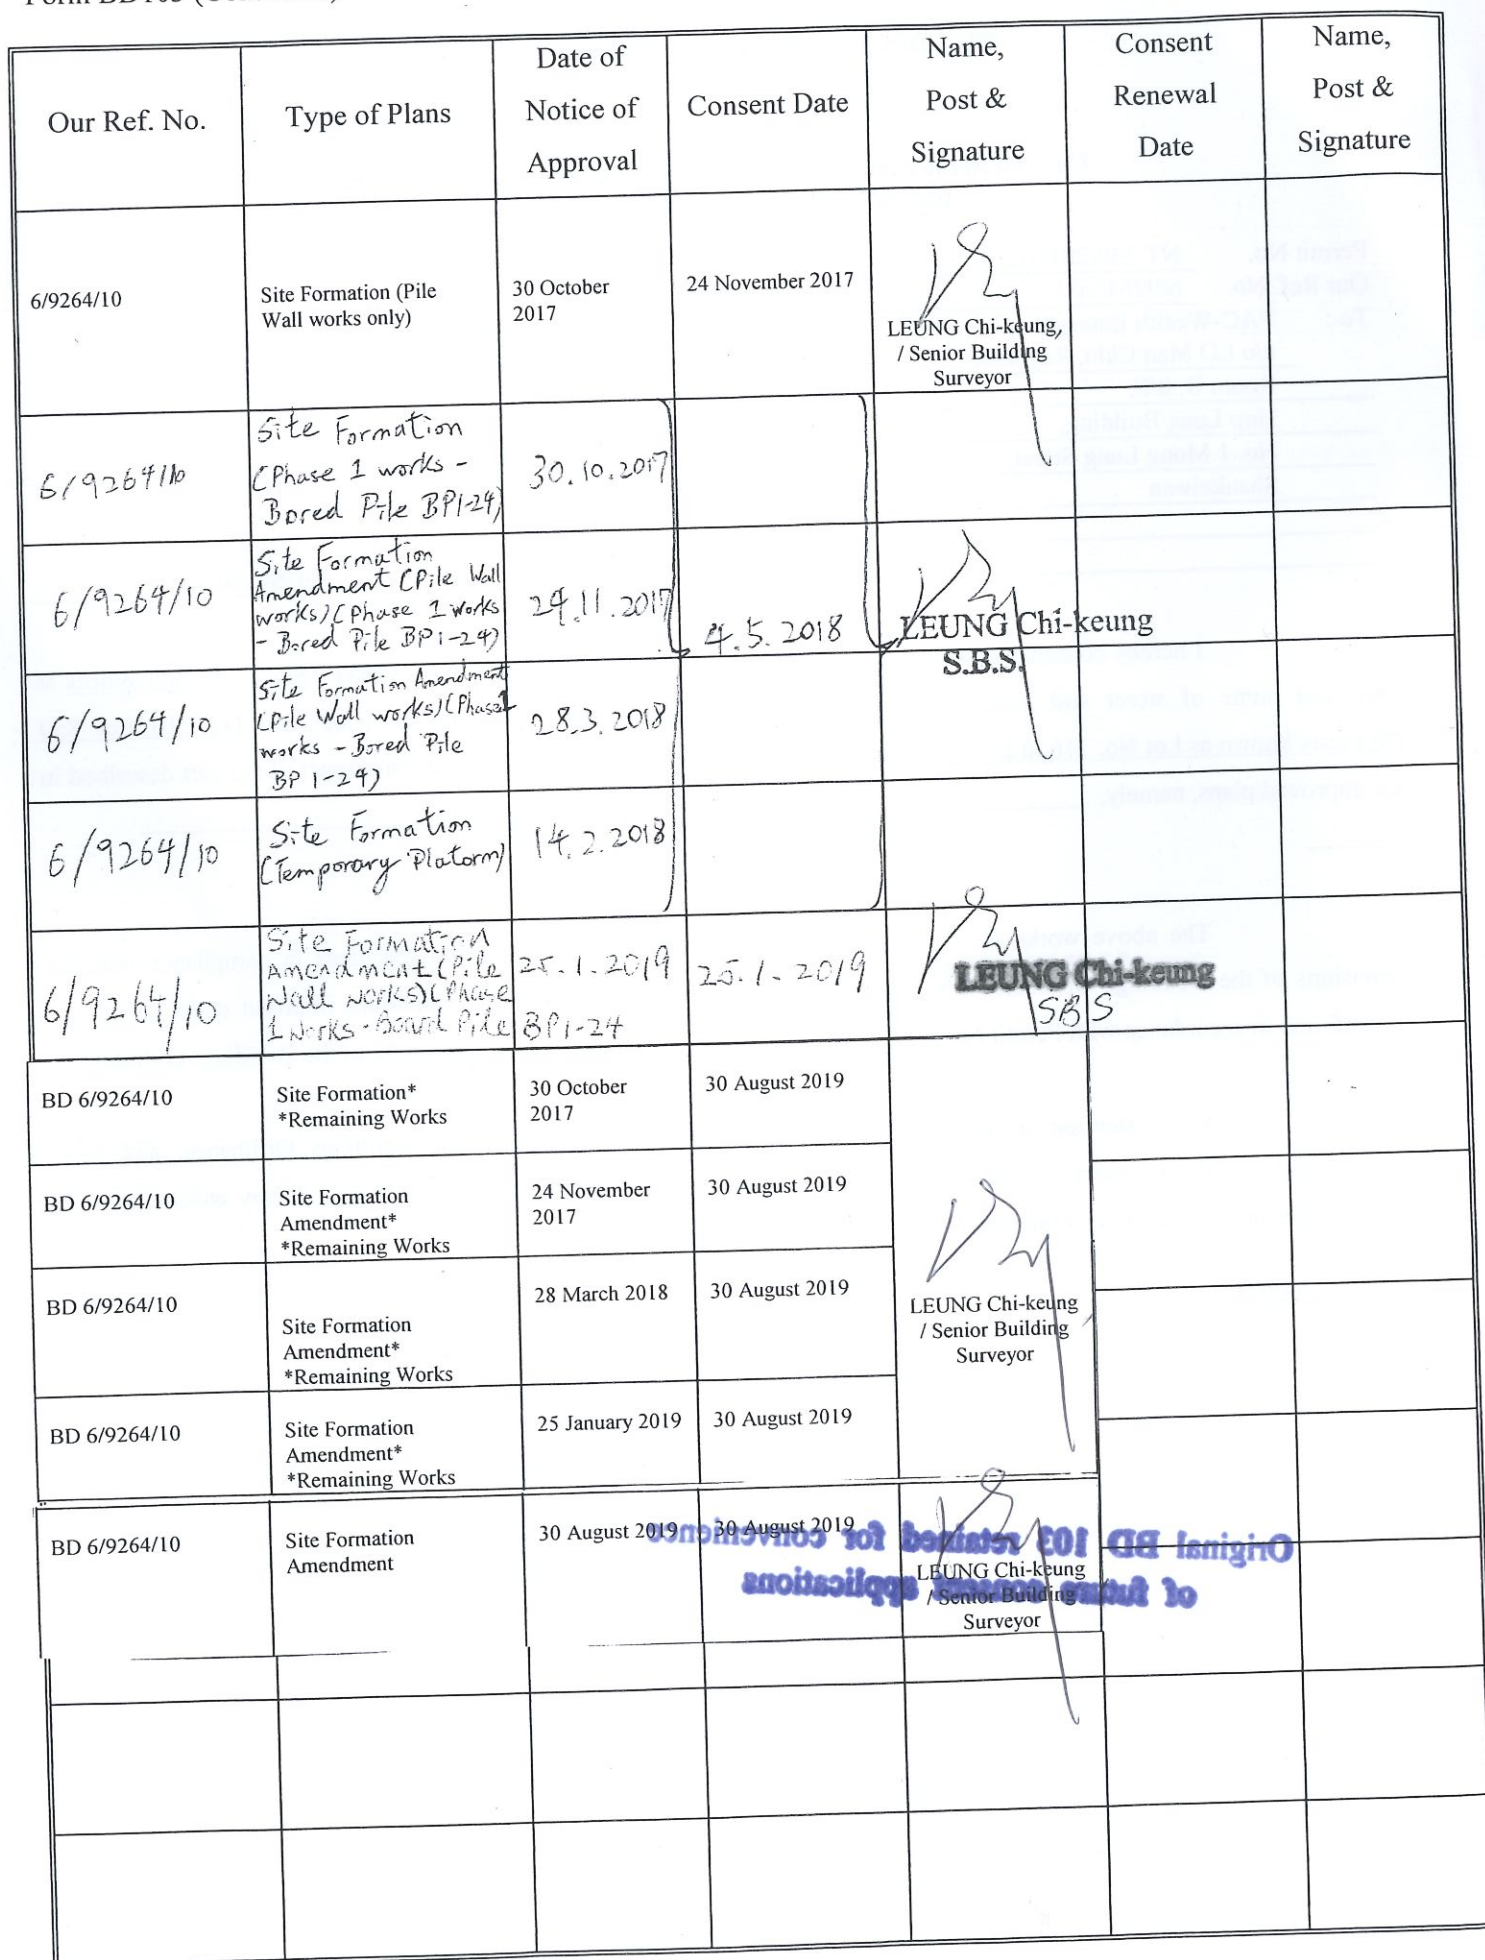 Our Ref. No.
Type of Plans
Date of
Notice of
Approval
Consent Date
Name,
Post &
Signature
Consent
Renewal
Date
Name,
Post &
Signature
6/9264/10
Site Formation (Pile
Wall works only)
30 October
2017
24 November 2017
LEUNG Chi-keung,
/ Senior Building
Surveyor
6/9264/10
Site Formation
(Phase 1 works -
Bored Pile BP1-24)
30.10.2017
6/9264/10
Site Formation
Amendment (Pile Wall
works)(Phase 1 works
- Bored Pile BP1-24)
24.11.2017
4.5.2018
LEUNG Chi-keung
S.B.S.
6/9264/10
Site Formation Amendment
(Pile Wall works)(Phase 1
works - Bored Pile
BP 1-24)
28.3.2018
6/9264/10
Site Formation
(Temporary Platorm)
14.2.2018
6/9264/10
Site Formation
Amendment (Pile
Wall works)(Phase
1 works - Bored Pile BP1-24
25.1.2019
25.1.2019
LEUNG Chi-keung
SBS
BD 6/9264/10
Site Formation*
*Remaining Works
30 October
2017
30 August 2019
BD 6/9264/10
Site Formation
Amendment*
*Remaining Works
24 November
2017
30 August 2019
BD 6/9264/10
Site Formation
Amendment*
*Remaining Works
28 March 2018
30 August 2019
LEUNG Chi-keung
/ Senior Building
Surveyor
BD 6/9264/10
Site Formation
Amendment*
*Remaining Works
25 January 2019
30 August 2019
BD 6/9264/10
Site Formation
Amendment
30 August 2019
30 August 2019
LEUNG Chi-keung
/ Senior Building
Surveyor
Original BD 103 retained for convenience
of future consent applications